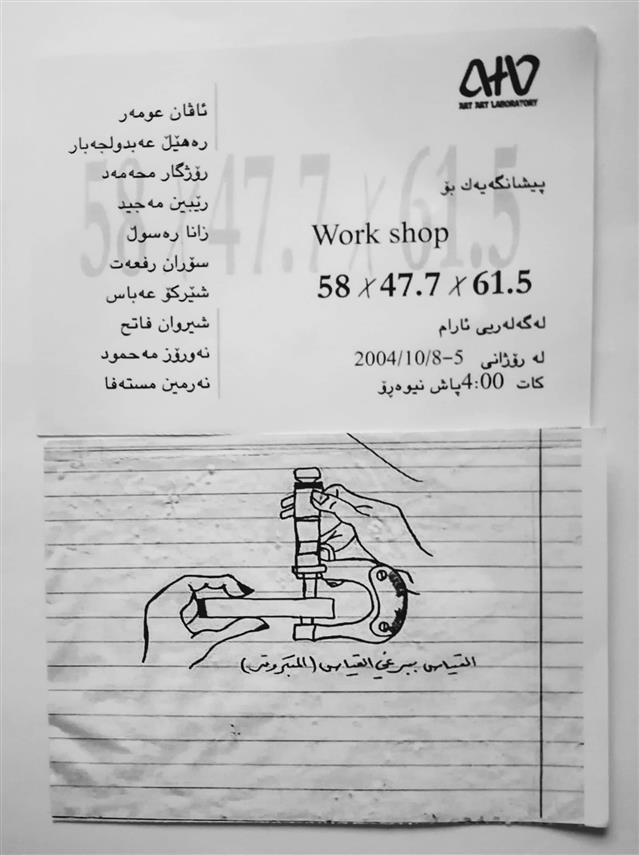 ART ART LABORATORY
ئاڤان عومەر
رەهێڵ عەبدولجەبار
رۆژگار محەمەد
رێبین مەجید
زانا رەسوڵ
سۆران رفعەت
شێرکۆ عەباس
شیروان فاتح
نەورۆز مەحمود
نەرمین مستەفا
58 X 47.7 X 61.5
پیشانگەیەك بۆ
Work shop
58 X 47.7 X 61.5
لەگەلەریی ئارام
لە رۆژانی 5-2004/10/8
کات 4:00پاش نیوەڕۆ
القياس ببرغي القياس (المیکرومتر)